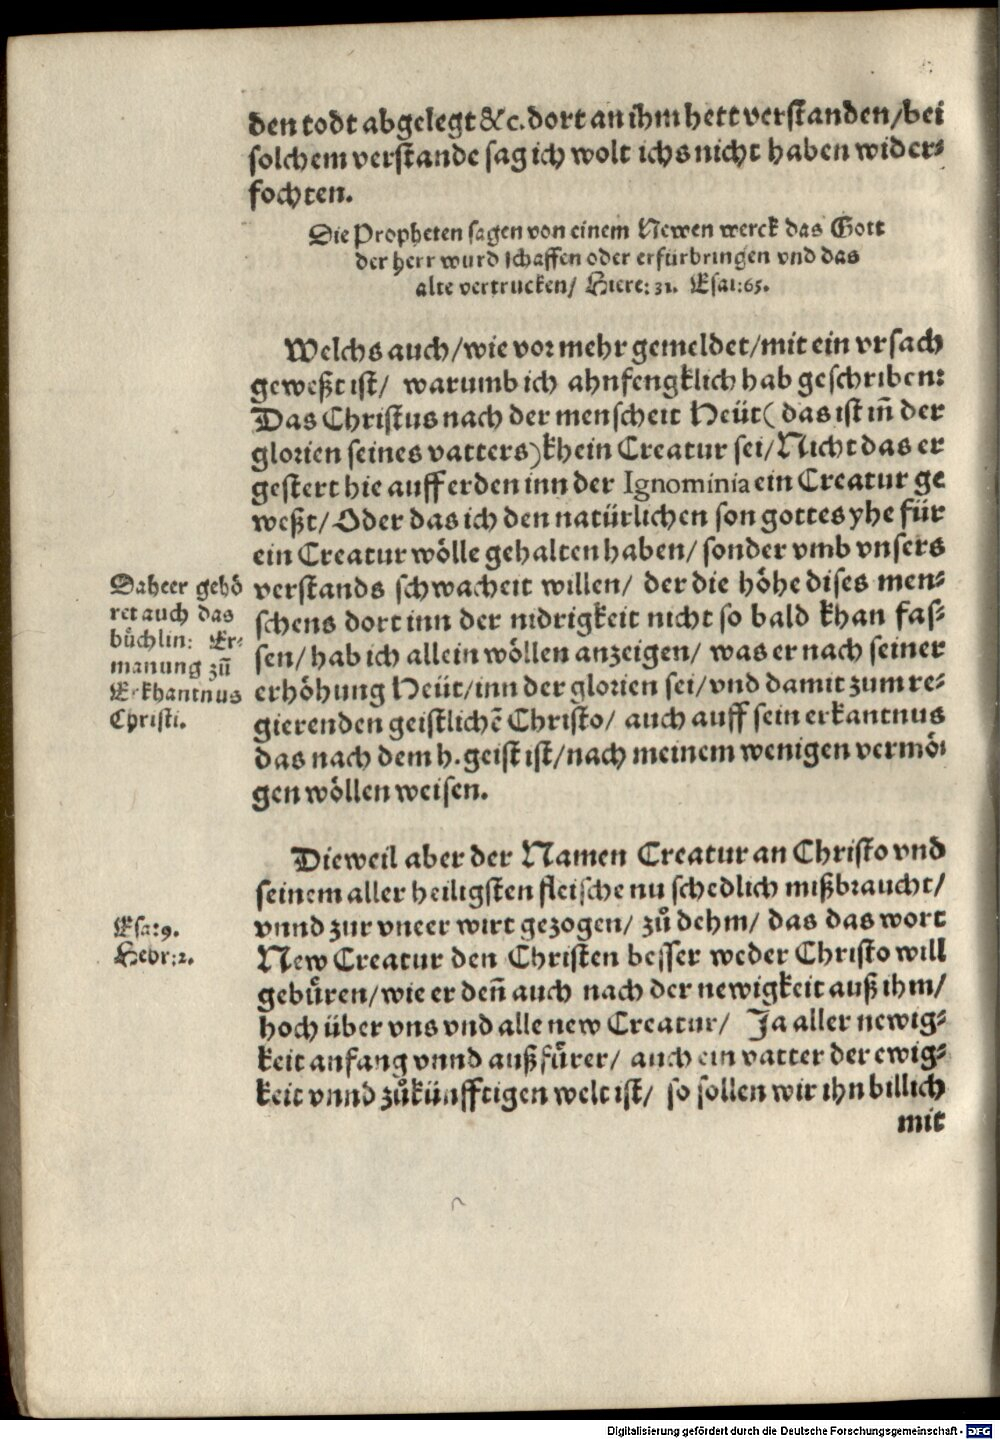 den todt abgelegt &c. dort an ihm hett verstanden/bei
solchem verstande sag ich wolt ichs nicht haben wider⸗
fochten.
Die Propheten sagen von einem Newen werck das Gott
der herr wurd schaffen oder erfürbringen vnd das
alte vertrucken/ Hiere: 31. Esai: 65.
Welchs auch/wie vor mehr gemeldet/mit ein vrsach
geweßt ist/ warumb ich ahnfengklich hab geschriben:
Das Christus nach der menscheit Heüt( das ist iñ der
glorien seines vatters)khein Creatur sei/Nicht das er
gestert hie auff erden inn der Ignominia ein Creatur ge
weßt/ Oder das ich den natürlichen son gottes yhe für
ein Creatur wölle gehalten haben/ sonder vmb vnsers
verstands schwacheit willen/ der die höhe dises men⸗
schens dort inn der nidrigkeit nicht so bald khan fas⸗
sen/ hab ich allein wöllen anzeigen/ was er nach seiner
erhöhung Heüt/inn der glorien sei/vnd damit zum re⸗
gierenden geistlichẽ Christo/ auch auff sein erkantnus
das nach dem h. geist ist/nach meinem wenigen vermö⸗
gen wöllen weisen.
Daheer gehö
ret auch das
büchlin: Er⸗
manung zů
Erkhantnus
Christi.
Dieweil aber der Namen Creatur an Christo vnd
seinem aller heiligsten fleische nu schedlich mißbraucht/
vnnd zur vneer wirt gezogen/ zů dehm/ das das wort
New Creatur den Christen besser weder Christo will
gebüren/wie er deñ auch nach der newigkeit auß ihm/
hoch über vns vnd alle new Creatur/ Ja aller newig⸗
keit anfang vnnd außfürer/ auch ein vatter der ewig⸗
keit vnnd zůkünfftigen welt ist/ so sollen wir ihn billich
Esa: 9.
Hebr: 2.
mit
Digitalisierung gefördert durch die Deutsche Forschungsgemeinschaft - DFG